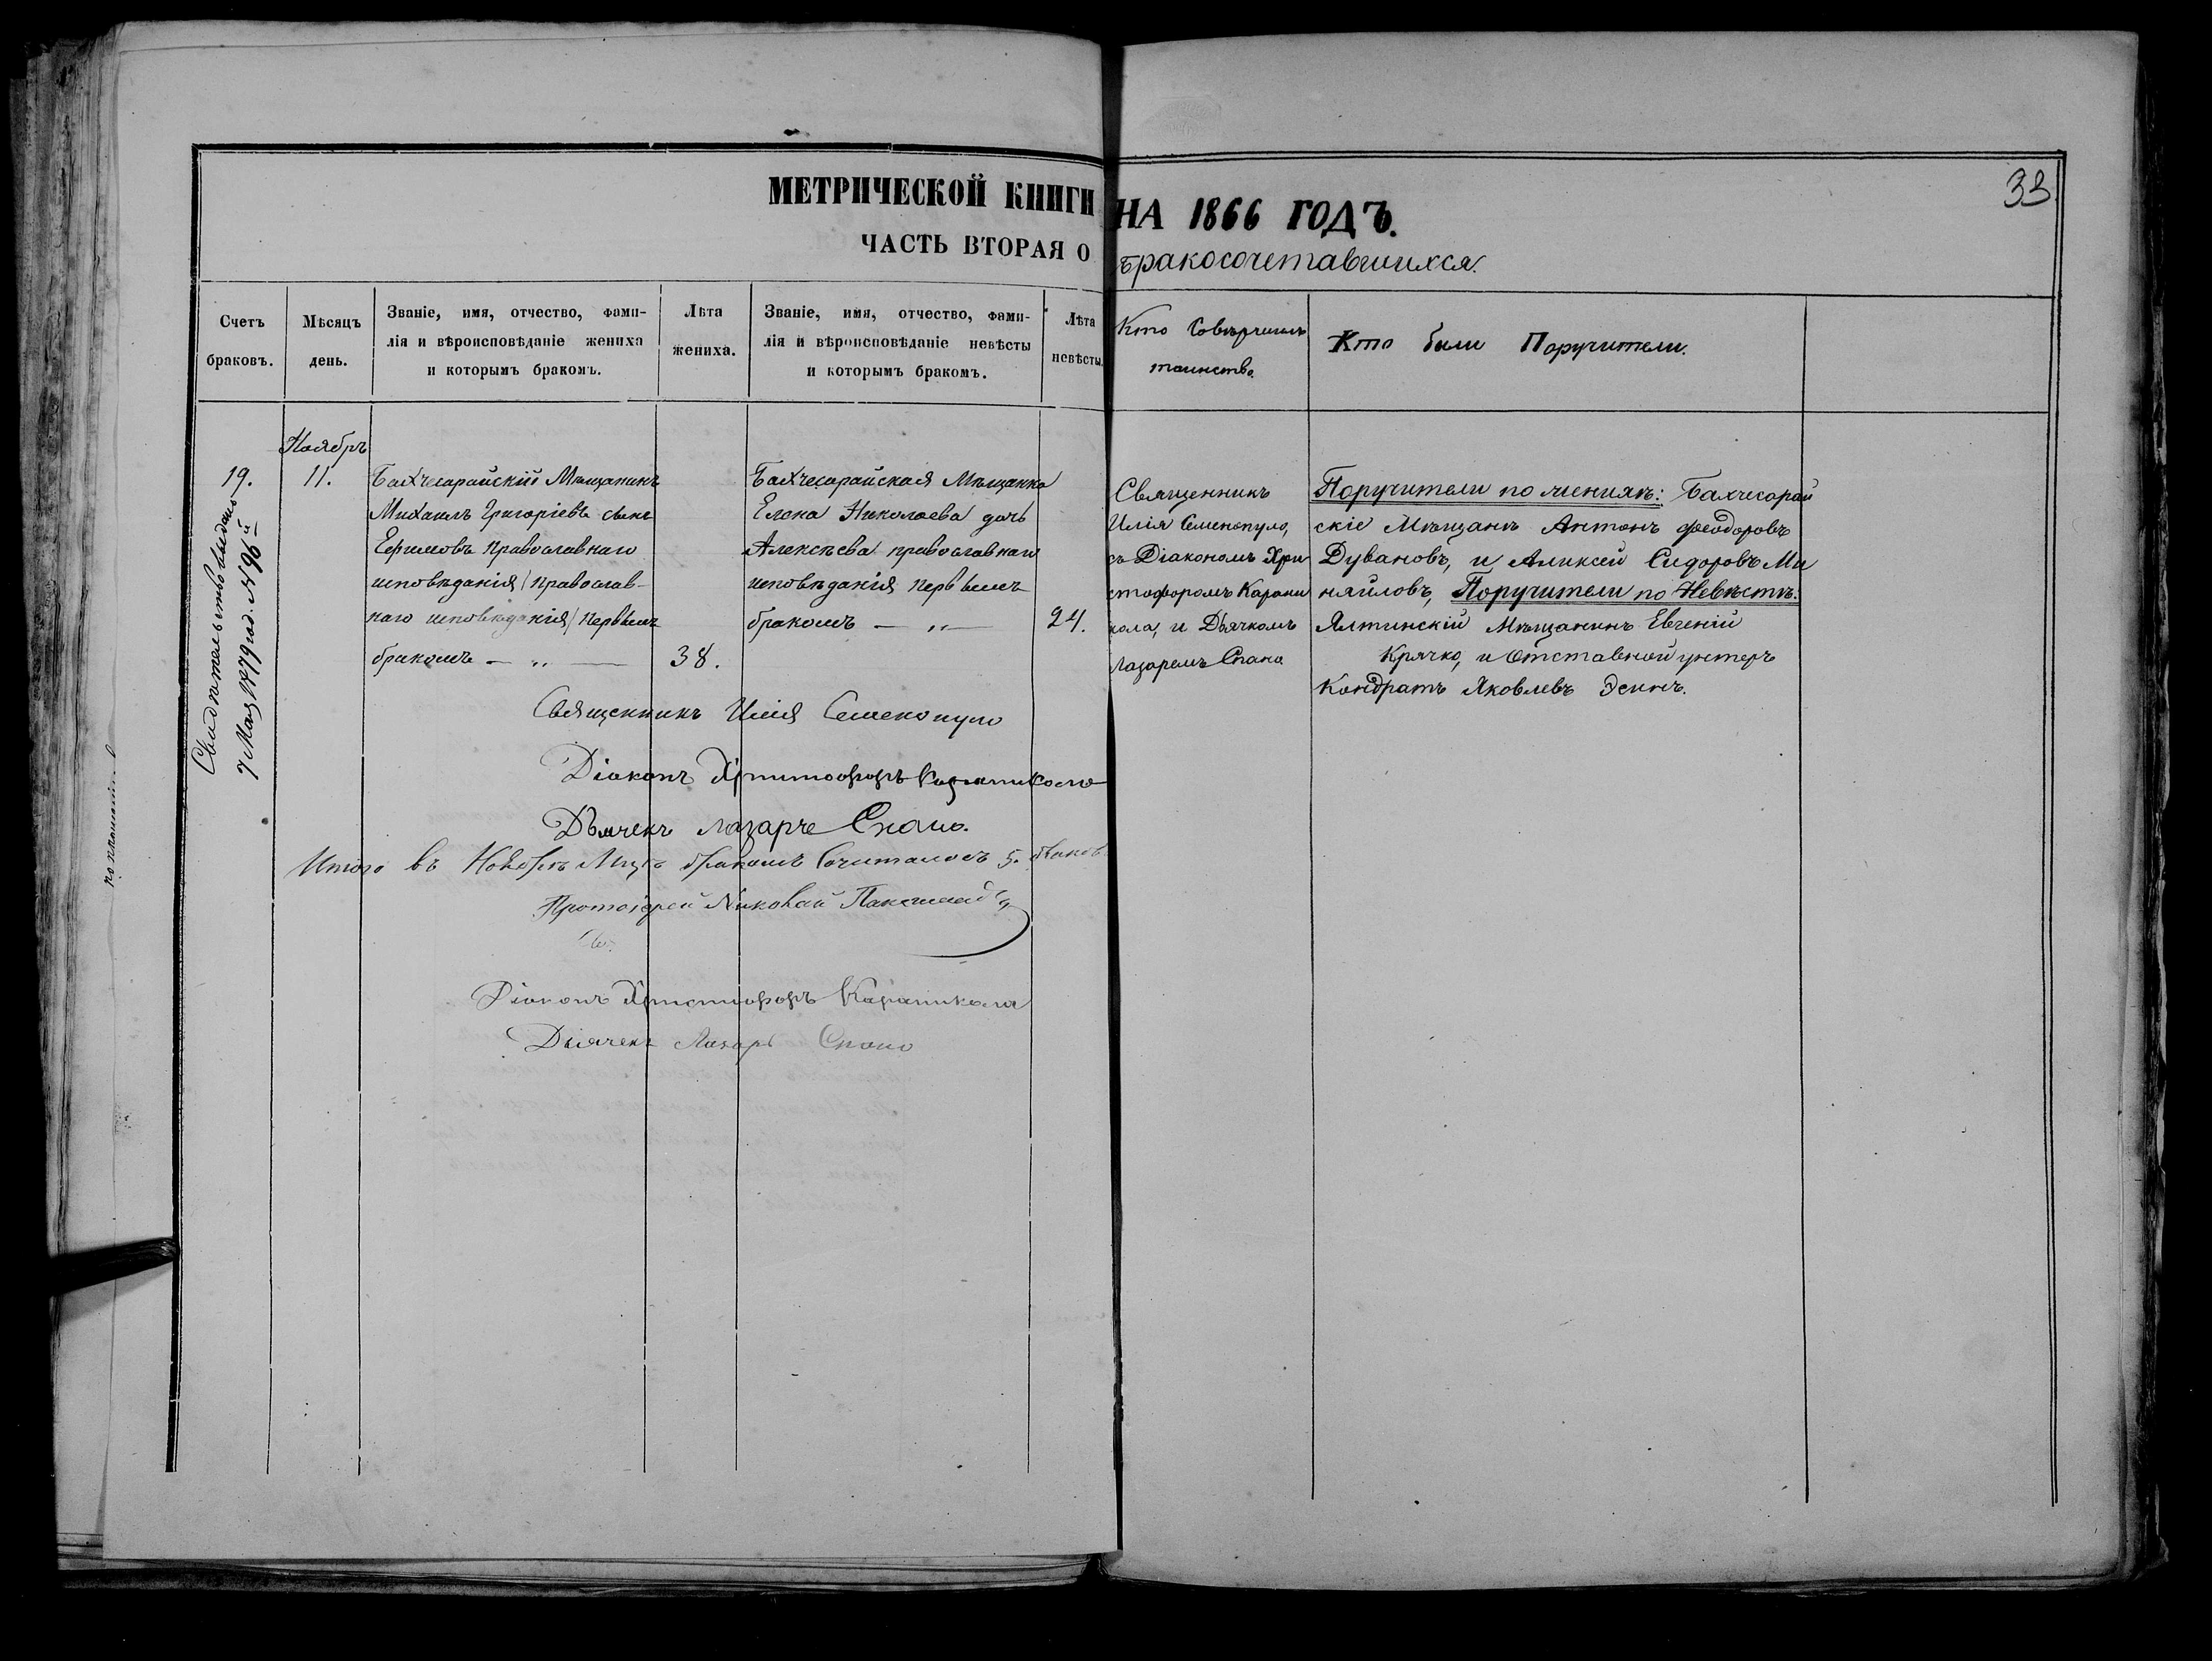 МЕТРИЧЕСКОЙ КНИГИ НА 1866 ГОДЪ.
33
ЧАСТЬ ВТОРАЯ О бракосочетавшихся.
Счетъ браковъ.
Мѣсяцъ день.
Званіе, имя, отчество, фами-
лія и вѣроисповѣданіе жениха
и которымъ бракомъ.
Лѣта жениха.
Званіе, имя, отчество, фами-
лія и вѣроисповѣданіе невѣсты
и которымъ бракомъ.
Лѣта невѣсты.
Кто Совѣршилъ
таинство.
Кто были Поручители.
Ноябрь
19.
11.
Свидѣтельство выдано
7 Мая 1879 год. №96й
Бахчесарайскій Мѣщанинъ
Михаилъ Григоріевъ сынъ
Ефимовъ православнаго
исповѣданія (православ-
наго исповѣданія) первымъ
бракомъ — „ —
38.
Бахчесарайская Мѣщанка
Елена Николаева дочь
Алексѣева православнаго
исповѣданія первымъ
бракомъ — „ —
24.
Священникъ
Илія Семенопуло,
съ Діакономъ Хри
стофоромъ Карани
кола, и Дьячкомъ
Лазаремъ Спано
Поручители по женихѣ: Бахчесарай
скіе Мѣщанъ Антонъ Феодоровъ
Дувановъ, и Аликсей Сидоровъ Ми
няйловъ, Поручители по Невѣстѣ:
Ялтинскій Мѣщанинъ Евгеній
Крячко, и Отставной унтеръ
Кондратъ Яковлевъ Эсинъ.
Священникъ Илія Семенопуло
Діаконъ Христофоръ Караникола
Дьячекъ Лазарь Спано.
Итого въ Ноябрѣ Мцѣ бракомъ Сочиталось 5. браков
Протоіерей Николай
Діаконъ Христофоръ Караникола
Дьячекъ Лазарь Спано